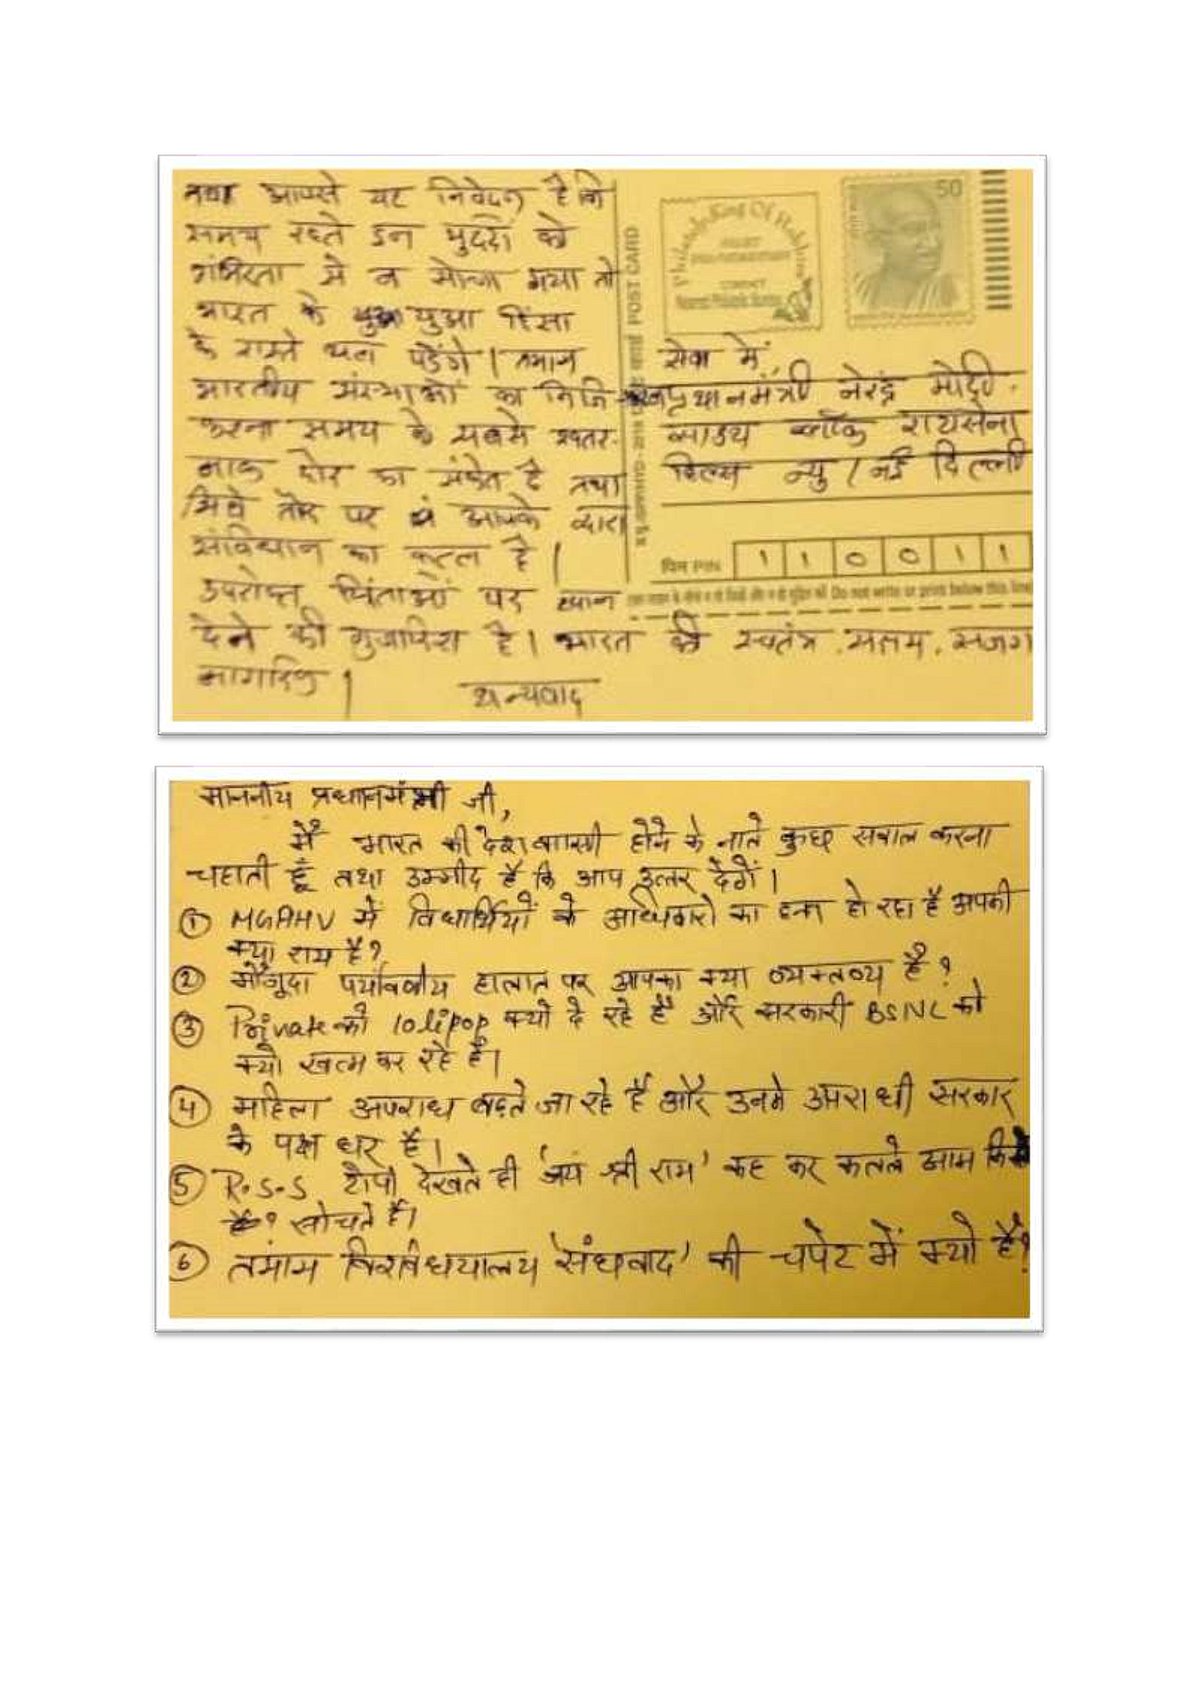 तथा आपसे यह निवेदन है कि
समय रहते इन मुद्दों को
गंभिरता से न सोचा गया तो
भारत के युआ हिंसा
के रास्ते चल पड़ेंगे। तमाम
भारतीय संस्थाओं का निजि
करना समय के सबसे खतर-
नाक दौर का संकेत है तथा
सिधे तौर पर आपके द्वारा
संविधान का कत्ल है।
उपरोक्त चिंताओं पर ध्यान
देने की गुजारिश है। भारत की स्वतंत्र, सक्षम, सजग
नागरिक।
धन्यवाद
POST CARD
50
सेवा में,
प्रधानमंत्री नरेंद्र मोदी,
साउथ ब्लॉक रायसेना
हिल्स न्यु / नई दिल्ली
पिन PIN 110011
Do not write or print below this line
माननीय प्रधानमंत्री जी,
मैं भारत की देशवासी होने के नाते कुछ सवाल करना
चहाती हूँ तथा उम्मीद है कि आप उत्तर देगें।
① MGAHV में विधार्थियों के अधिकारो का हनन हो रहा है अपकी
क्या राय है?
② मौजूदा पर्यावर्णीय हालात पर आपका क्या व्यक्तव्य है?
③ Private को lolipop क्यों दे रहे हैं और सरकारी BSNL को
क्यों खत्म कर रहे हैं।
④ महिला अपराध बढते जा रहे हैं और उनमे अपराधी सरकार
के पक्ष धर हैं।
⑤ R.S.S टोपी देखते ही 'जय श्री राम' कह कर कतले आम
सोचते हैं।
⑥ तमाम विश्वविधयालय 'संघवाद' की चपेट में क्यों हैं?